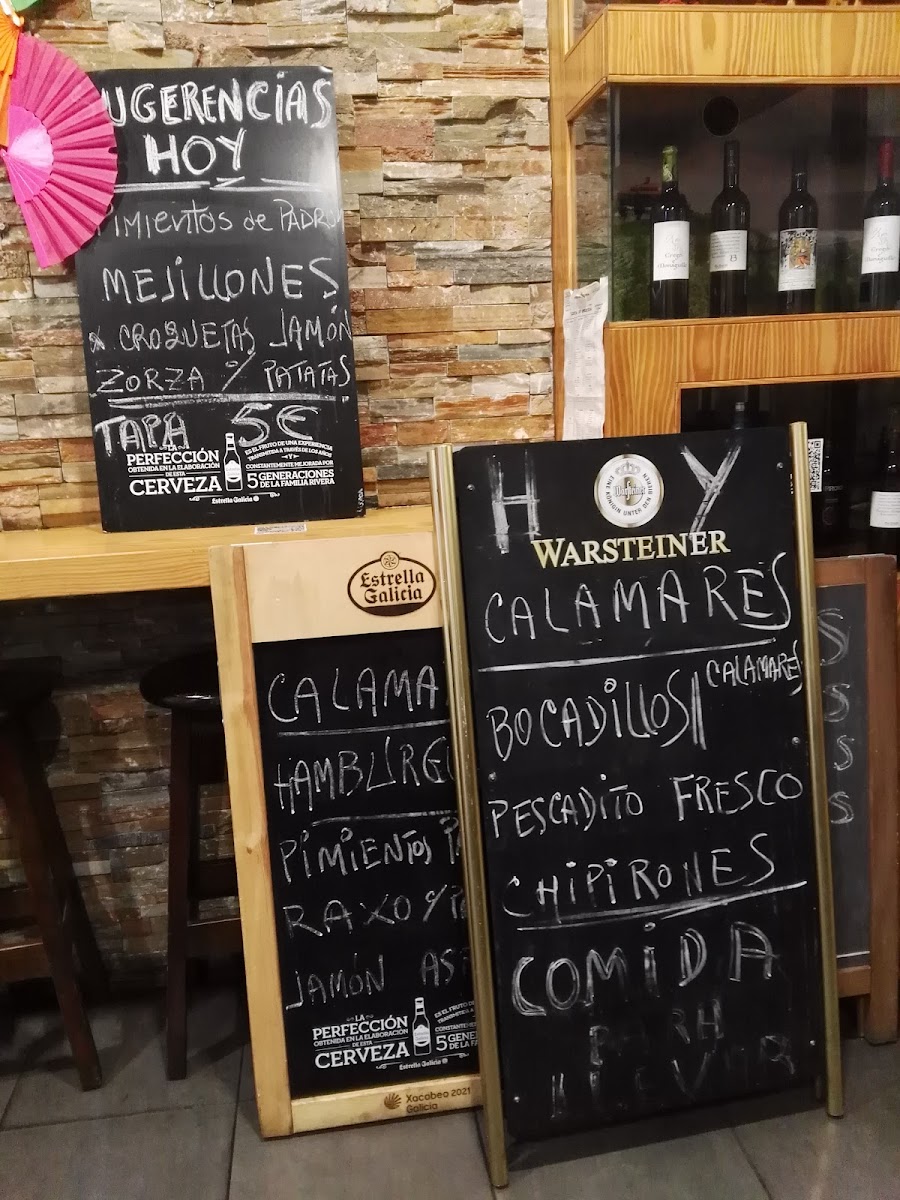 UGERENCIAS
HOY
IMIENTOS de PADRÓN
MEJILLONES
CROQUETAS JAMÓN
ZORZA Y PATATAS
TAPA 5€
LA
PERFECCIÓN
OBTENIDA EN LA ELABORACIÓN
DE ESTA
CERVEZA
ES EL FRUTO DE UNA EXPERIENCIA
TRANSMITIDA A TRAVÉS DE LOS AÑOS
Y
CONSTANTEMENTE MEJORADA POR
5 GENERACIONES
DE LA FAMILIA RIVERA
Estrella Galicia
Estrella
Galicia
CALAMA
HAMBURG
PIMIENTOS
RAXO Y
JAMÓN AS
LA
PERFECCIÓN
OBTENIDA EN LA ELABORACIÓN
DE ESTA
CERVEZA
ES EL FRUTO DE
TRANSMITIDA A
CONSTANTEMENTE
5 GENE
DE LA FA
Estrella Galicia
Xacobeo 2021
Galicia
H Y
EINE KÖNIGIN UNTER DEN BIEREN
Warsteiner
WARSTEINER
CALAMARES
BOCADILLOS CALAMARES
PESCADITO FRESCO
CHIPIRONES
COMIDA
S
S
S
S